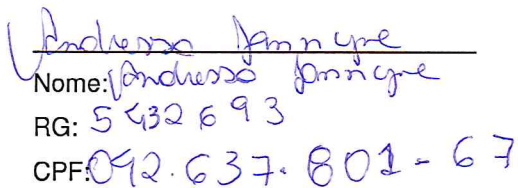 Vandressa Jannyne
Nome: Vandressa Jannyne
RG: 5432693
CPF: 042.637.801-67